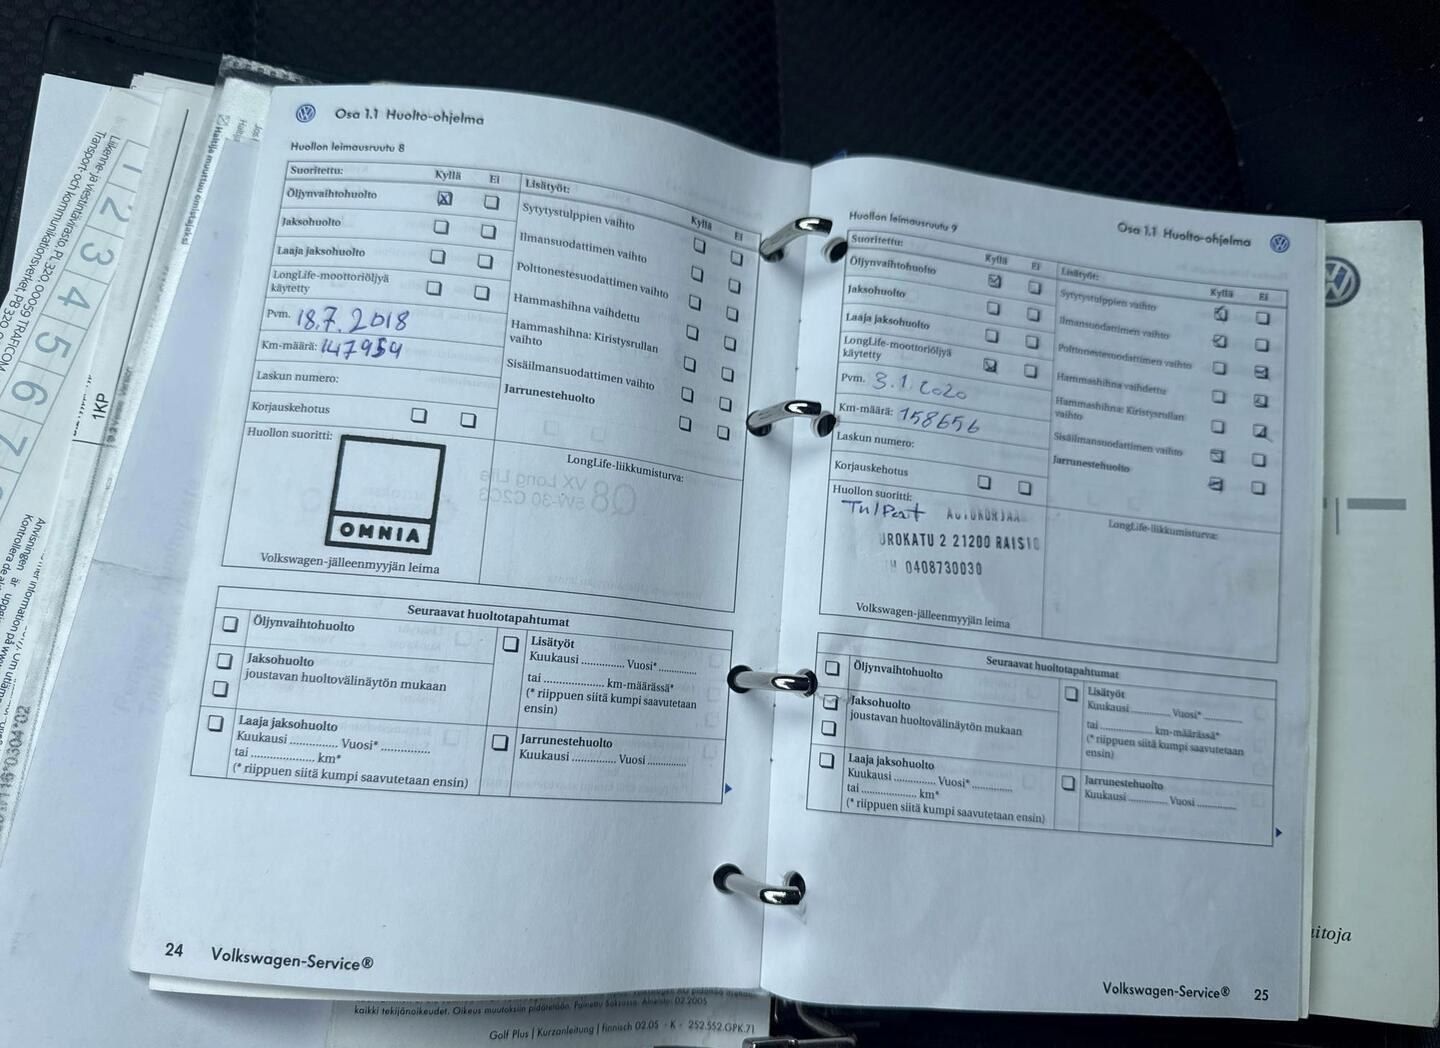 Osa 1.1 Huolto-ohjelma
Huollon leimausruutu 8
Suoritettu: Kyllä Ei
Öljynvaihtohuolto
Jaksohuolto
Laaja jaksohuolto
LongLife-moottoriöljyä
käytetty
Pvm. 18.7.2018
Km-määrä: 147954
Laskun numero:
Korjauskehotus
Lisätyöt: Kyllä Ei
Sytytystulppien vaihto
Ilmansuodattimen vaihto
Polttonestesuodattimen vaihto
Hammashihna vaihdettu
Hammashihna: Kiristysrullan
vaihto
Sisäilmansuodattimen vaihto
Jarrunestehuolto
Huollon suoritti:
OMNIA
Volkswagen-jälleenmyyjän leima
LongLife-liikkumisturva:
Seuraavat huoltotapahtumat
Öljynvaihtohuolto
Jaksohuolto
joustavan huoltovälinäytön mukaan
Laaja jaksohuolto
Kuukausi .............. Vuosi* ..............
tai .................... km*
(* riippuen siitä kumpi saavutetaan ensin)
Lisätyöt
Kuukausi .............. Vuosi* ............
tai .................... km-määrässä*
(* riippuen siitä kumpi saavutetaan
ensin)
Jarrunestehuolto
Kuukausi .............. Vuosi ............
24 Volkswagen-Service®
Huollon leimausruutu 9
Osa 1.1 Huolto-ohjelma
Suoritettu: Kyllä Ei
Öljynvaihtohuolto
Jaksohuolto
Laaja jaksohuolto
LongLife-moottoriöljyä
käytetty
Pvm. 3.1.2020
Km-määrä: 158656
Laskun numero:
Korjauskehotus
Lisätyöt: Kyllä Ei
Sytytystulppien vaihto
Ilmansuodattimen vaihto
Polttonestesuodattimen vaihto
Hammashihna vaihdettu
Hammashihna: Kiristysrullan
vaihto
Sisäilmansuodattimen vaihto
Jarrunestehuolto
Huollon suoritti:
AUTOKORJAA
UROKATU 2 21200 RAISIO
0408730030
Volkswagen-jälleenmyyjän leima
LongLife-liikkumisturva:
Seuraavat huoltotapahtumat
Öljynvaihtohuolto
Jaksohuolto
joustavan huoltovälinäytön mukaan
Laaja jaksohuolto
Kuukausi .............. Vuosi* ..............
tai .................... km*
(* riippuen siitä kumpi saavutetaan ensin)
Lisätyöt
Kuukausi .............. Vuosi* ............
tai .................... km-määrässä*
(* riippuen siitä kumpi saavutetaan
ensin)
Jarrunestehuolto
Kuukausi .............. Vuosi ..............
Volkswagen-Service® 25
kaikki tekijänoikeudet. Oikeus muutoksiin pidätetään. Painettu Saksassa. 02.2005
Golf Plus | Kurzanleitung | finnisch 02.05 - K - 252.552.GPK.71
itoja
Liikenne- ja viestintävirasto, PL 320, 00059 TRAFICOM
Transport- och kommunikationsverket, PB 320
1 2 3 4 5 6 7
1KP
Haltija muuttuu omistajaksi